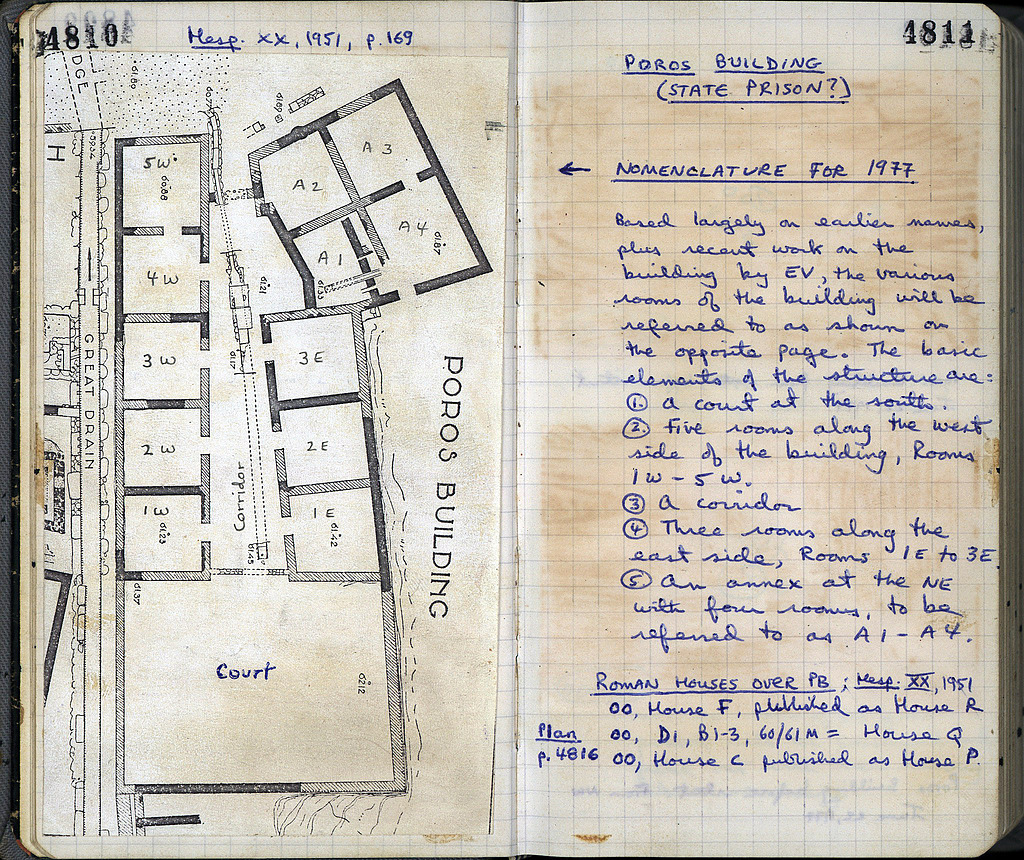 4810
Hesp. XX, 1951, p. 169
DGE
H
GREAT DRAIN
5W
4W
3W
2W
1W
A3
A2
A4
A1
3E
2E
1E
Corridor
Court
POROS BUILDING
61.80
59.34
60.88
61.21
61.87
61.23
61.42
61.45
61.37
62.12
4811
POROS BUILDING
(STATE PRISON?)
← NOMENCLATURE FOR 1977
Based largely on earlier names,
plus recent work on the
building by EV, the various
rooms of the building will be
referred to as shown on
the opposite page. The basic
elements of the structure are:
① A court at the south.
② Five rooms along the west
side of the building, Rooms
1W - 5W.
③ A corridor
④ Three rooms along the
east side, Rooms 1E to 3E
⑤ An annex at the NE
with four rooms, to be
referred to as A1 - A4.
ROMAN HOUSES OVER PB; Hesp. XX, 1951
OO, House F, published as House R
Plan OO, D1, B1-3, 60/61M = House Q
p. 4816 OO, House C published as House P.